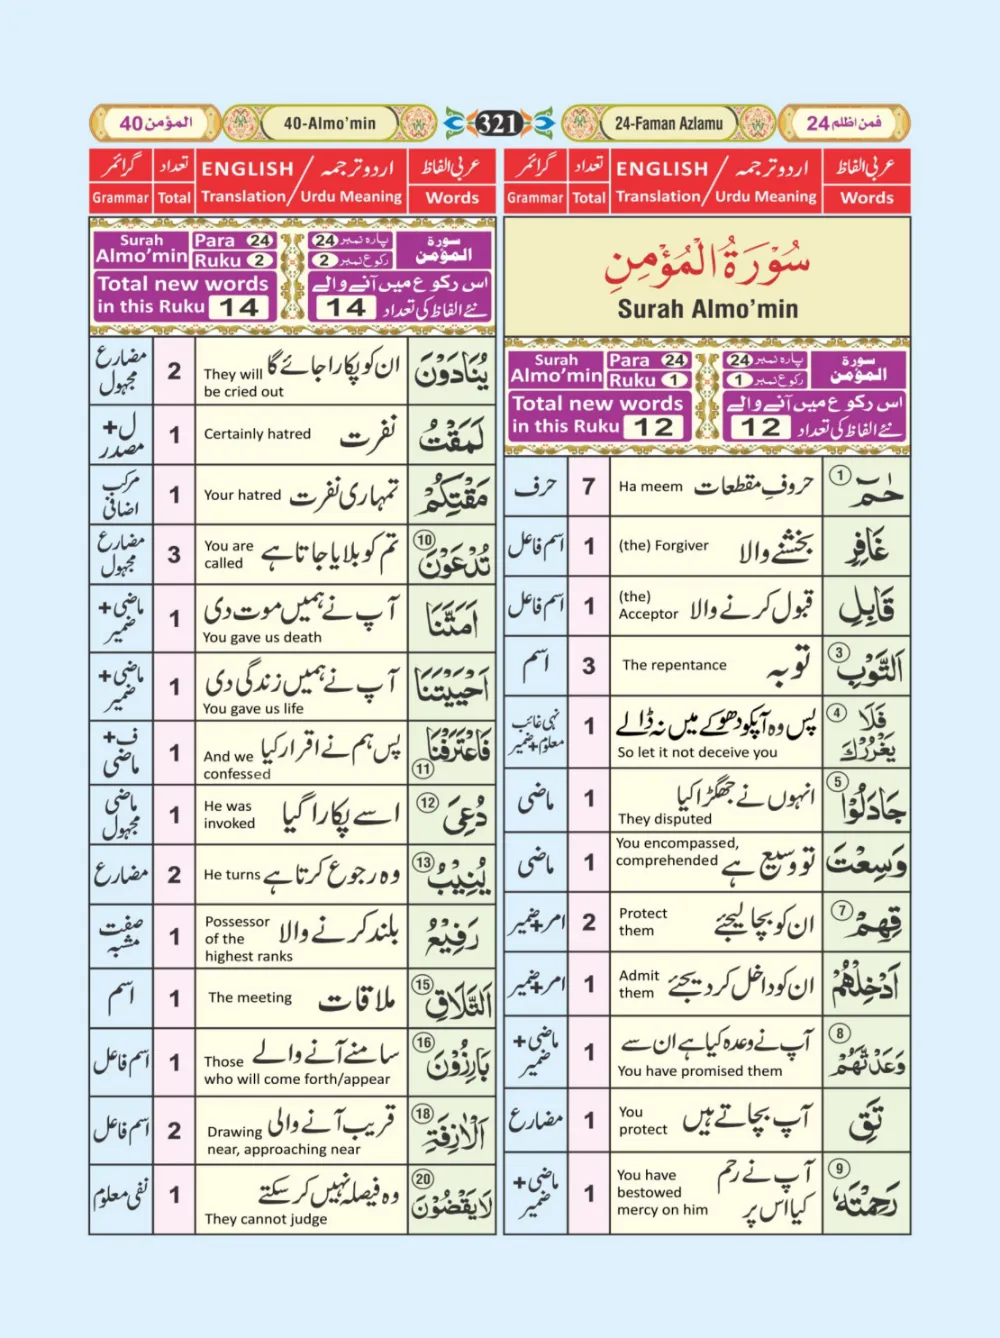 المؤمن 40
40-Almo’min
321
24-Faman Azlamu
فمن اظلم 24
عربی الفاظ
اردو ترجمہ / ENGLISH
تعداد
گرائمر
Words
Translation / Urdu Meaning
Total
Grammar
سُوْرَةُ الْمُؤْمِنِ
Surah Almo’min
Surah Almo’min
Para 24
Ruku 1
پارہ نمبر 24
رکوع نمبر 1
سورة المؤمن
Total new words
in this Ruku 12
اس رکوع میں آنے والے
نئے الفاظ کی تعداد 12
حٰمٓ ①
حروفِ مقطعات Ha meem
7
حرف
غَافِرِ
بخشنے والا (the) Forgiver
1
اسم فاعل
قَابِلِ
قبول کرنے والا (the) Acceptor
1
اسم فاعل
التَّوْبِ ③
توبہ The repentance
3
اسم
فَلَا يَغْرُرْكَ ④
پس وہ آپکو دھوکے میں نہ ڈالے
So let it not deceive you
1
نہی غائب معلوم+ضمیر
جَادَلُوْا ⑤
انہوں نے جھگڑا کیا
They disputed
1
ماضی
وَسِعْتَ
تو وسیع ہے You encompassed, comprehended
1
ماضی
قِهِمْ ⑦
ان کو بچا لیجئے Protect them
2
امر+ضمیر
اَدْخِلْهُمْ
ان کو داخل کر دیجئے Admit them
1
امر+ضمیر
وَعَدْتَّهُمْ ⑧
آپ نے وعدہ کیا ہے ان سے
You have promised them
1
ماضی+ ضمیر
تَقِ
آپ بچاتے ہیں You protect
1
مضارع
رَحِمْتَهٗ ⑨
آپ نے رحم کیا اس پر You have bestowed mercy on him
1
ماضی+ ضمیر
عربی الفاظ
اردو ترجمہ / ENGLISH
تعداد
گرائمر
Words
Translation / Urdu Meaning
Total
Grammar
Surah Almo’min
Para 24
Ruku 2
پارہ نمبر 24
رکوع نمبر 2
سورة المؤمن
Total new words
in this Ruku 14
اس رکوع میں آنے والے
نئے الفاظ کی تعداد 14
يُنَادَوْنَ
ان کو پکارا جائے گا They will be cried out
2
مضارع مجہول
لَمَقْتُ
نفرت Certainly hatred
1
ل+ مصدر
مَقْتِكُمْ
تمہاری نفرت Your hatred
1
مرکب اضافی
تُدْعَوْنَ ⑩
تم کو بلایا جاتا ہے You are called
3
مضارع مجہول
اَمَتَّنَا
آپ نے ہمیں موت دی
You gave us death
1
ماضی+ ضمیر
اَحْيَيْتَنَا
آپ نے ہمیں زندگی دی
You gave us life
1
ماضی+ ضمیر
فَاعْتَرَفْنَا ⑪
پس ہم نے اقرار کیا And we confessed
1
ف+ ماضی
دُعِيَ ⑫
اسے پکارا گیا He was invoked
1
ماضی مجہول
يُنِيْبُ ⑬
وہ رجوع کرتا ہے He turns
2
مضارع
رَفِيْعُ
بلند کرنے والا Possessor of the highest ranks
1
صفت مشبہ
التَّلَاقِ ⑮
ملاقات The meeting
1
اسم
بَارِزُوْنَ ⑯
سامنے آنے والے Those who will come forth/appear
1
اسم فاعل
الْاٰزِفَةِ ⑱
قریب آنے والی Drawing near, approaching near
2
اسم فاعل
لَا يَقْضُوْنَ ⑳
وہ فیصلہ نہیں کر سکتے
They cannot judge
1
نفی معلوم